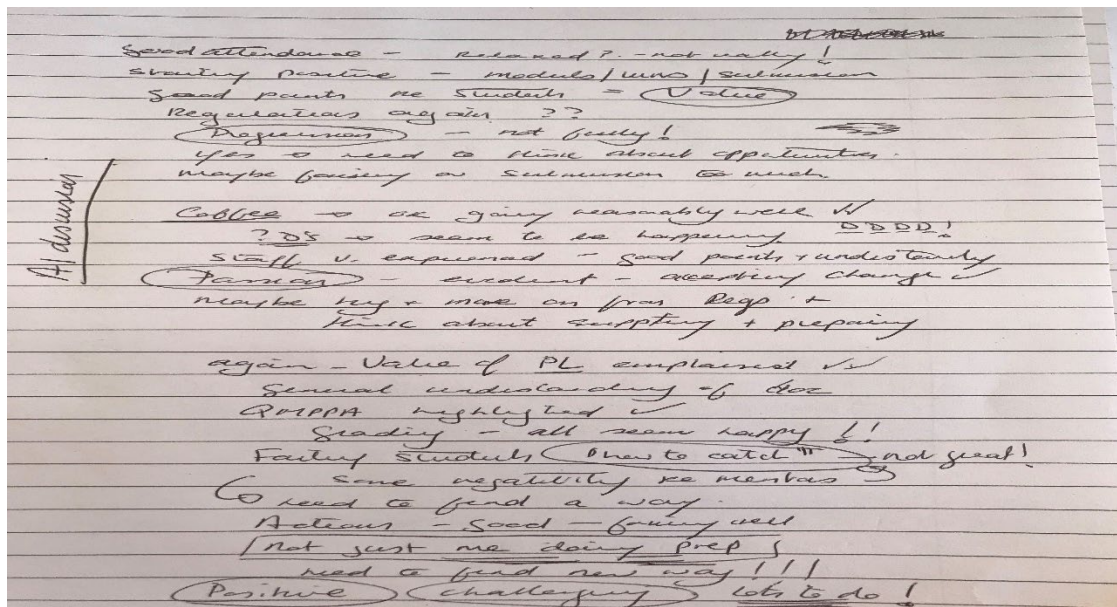 Good attendance - Relaxed? - not really!
Starting positive - module / / submission
Good points re students = Value
Regulations again ??
Progression - not fully!
Yes → need to think about
maybe on submission to much.
A/ discussion
Coffee → ok going reasonably well ✓✓
? DS → seem to be happening. DDDD!
Staff v. experienced - good points + understanding
Passion - evident - accepting change ✓
maybe try + move on from Regs. +
think about + preparing
again - Value of PL ✓✓
General understanding of doc
highlighted ✓
Grading - all seem happy !!
students "how to catch" - not great!
Some re mentors
need to find a way.
Actions - Good - well
not just me doing prep
need to find new way!!!
Positive challenging Lots to do!